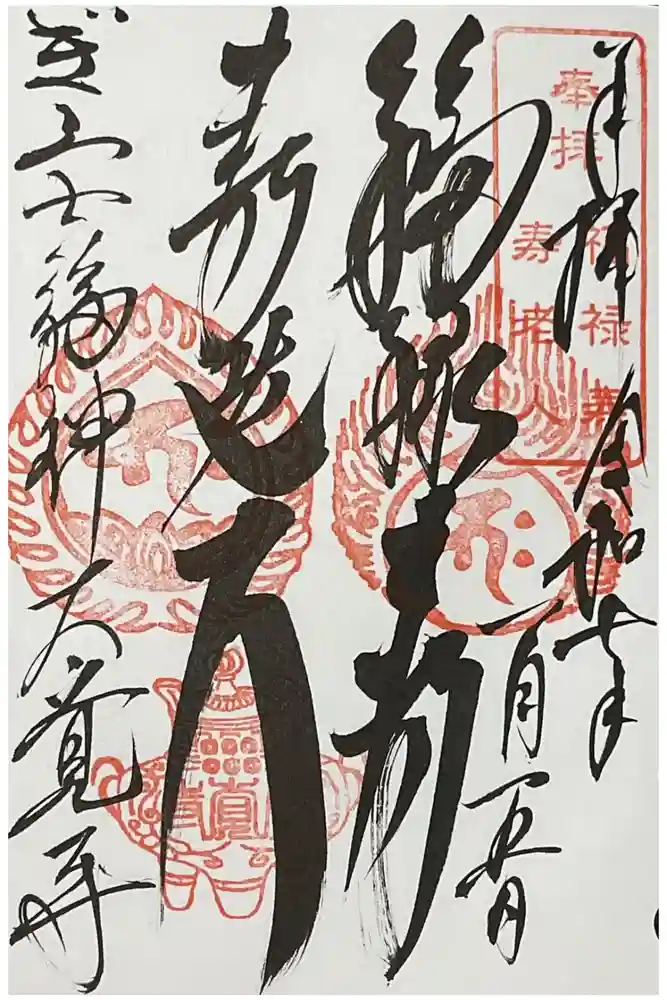 奉拝 令和七年
一月五日
福禄寿
寿老人
ぎふ七福神 大覚寺
奉拝
福禄寿
寿老人